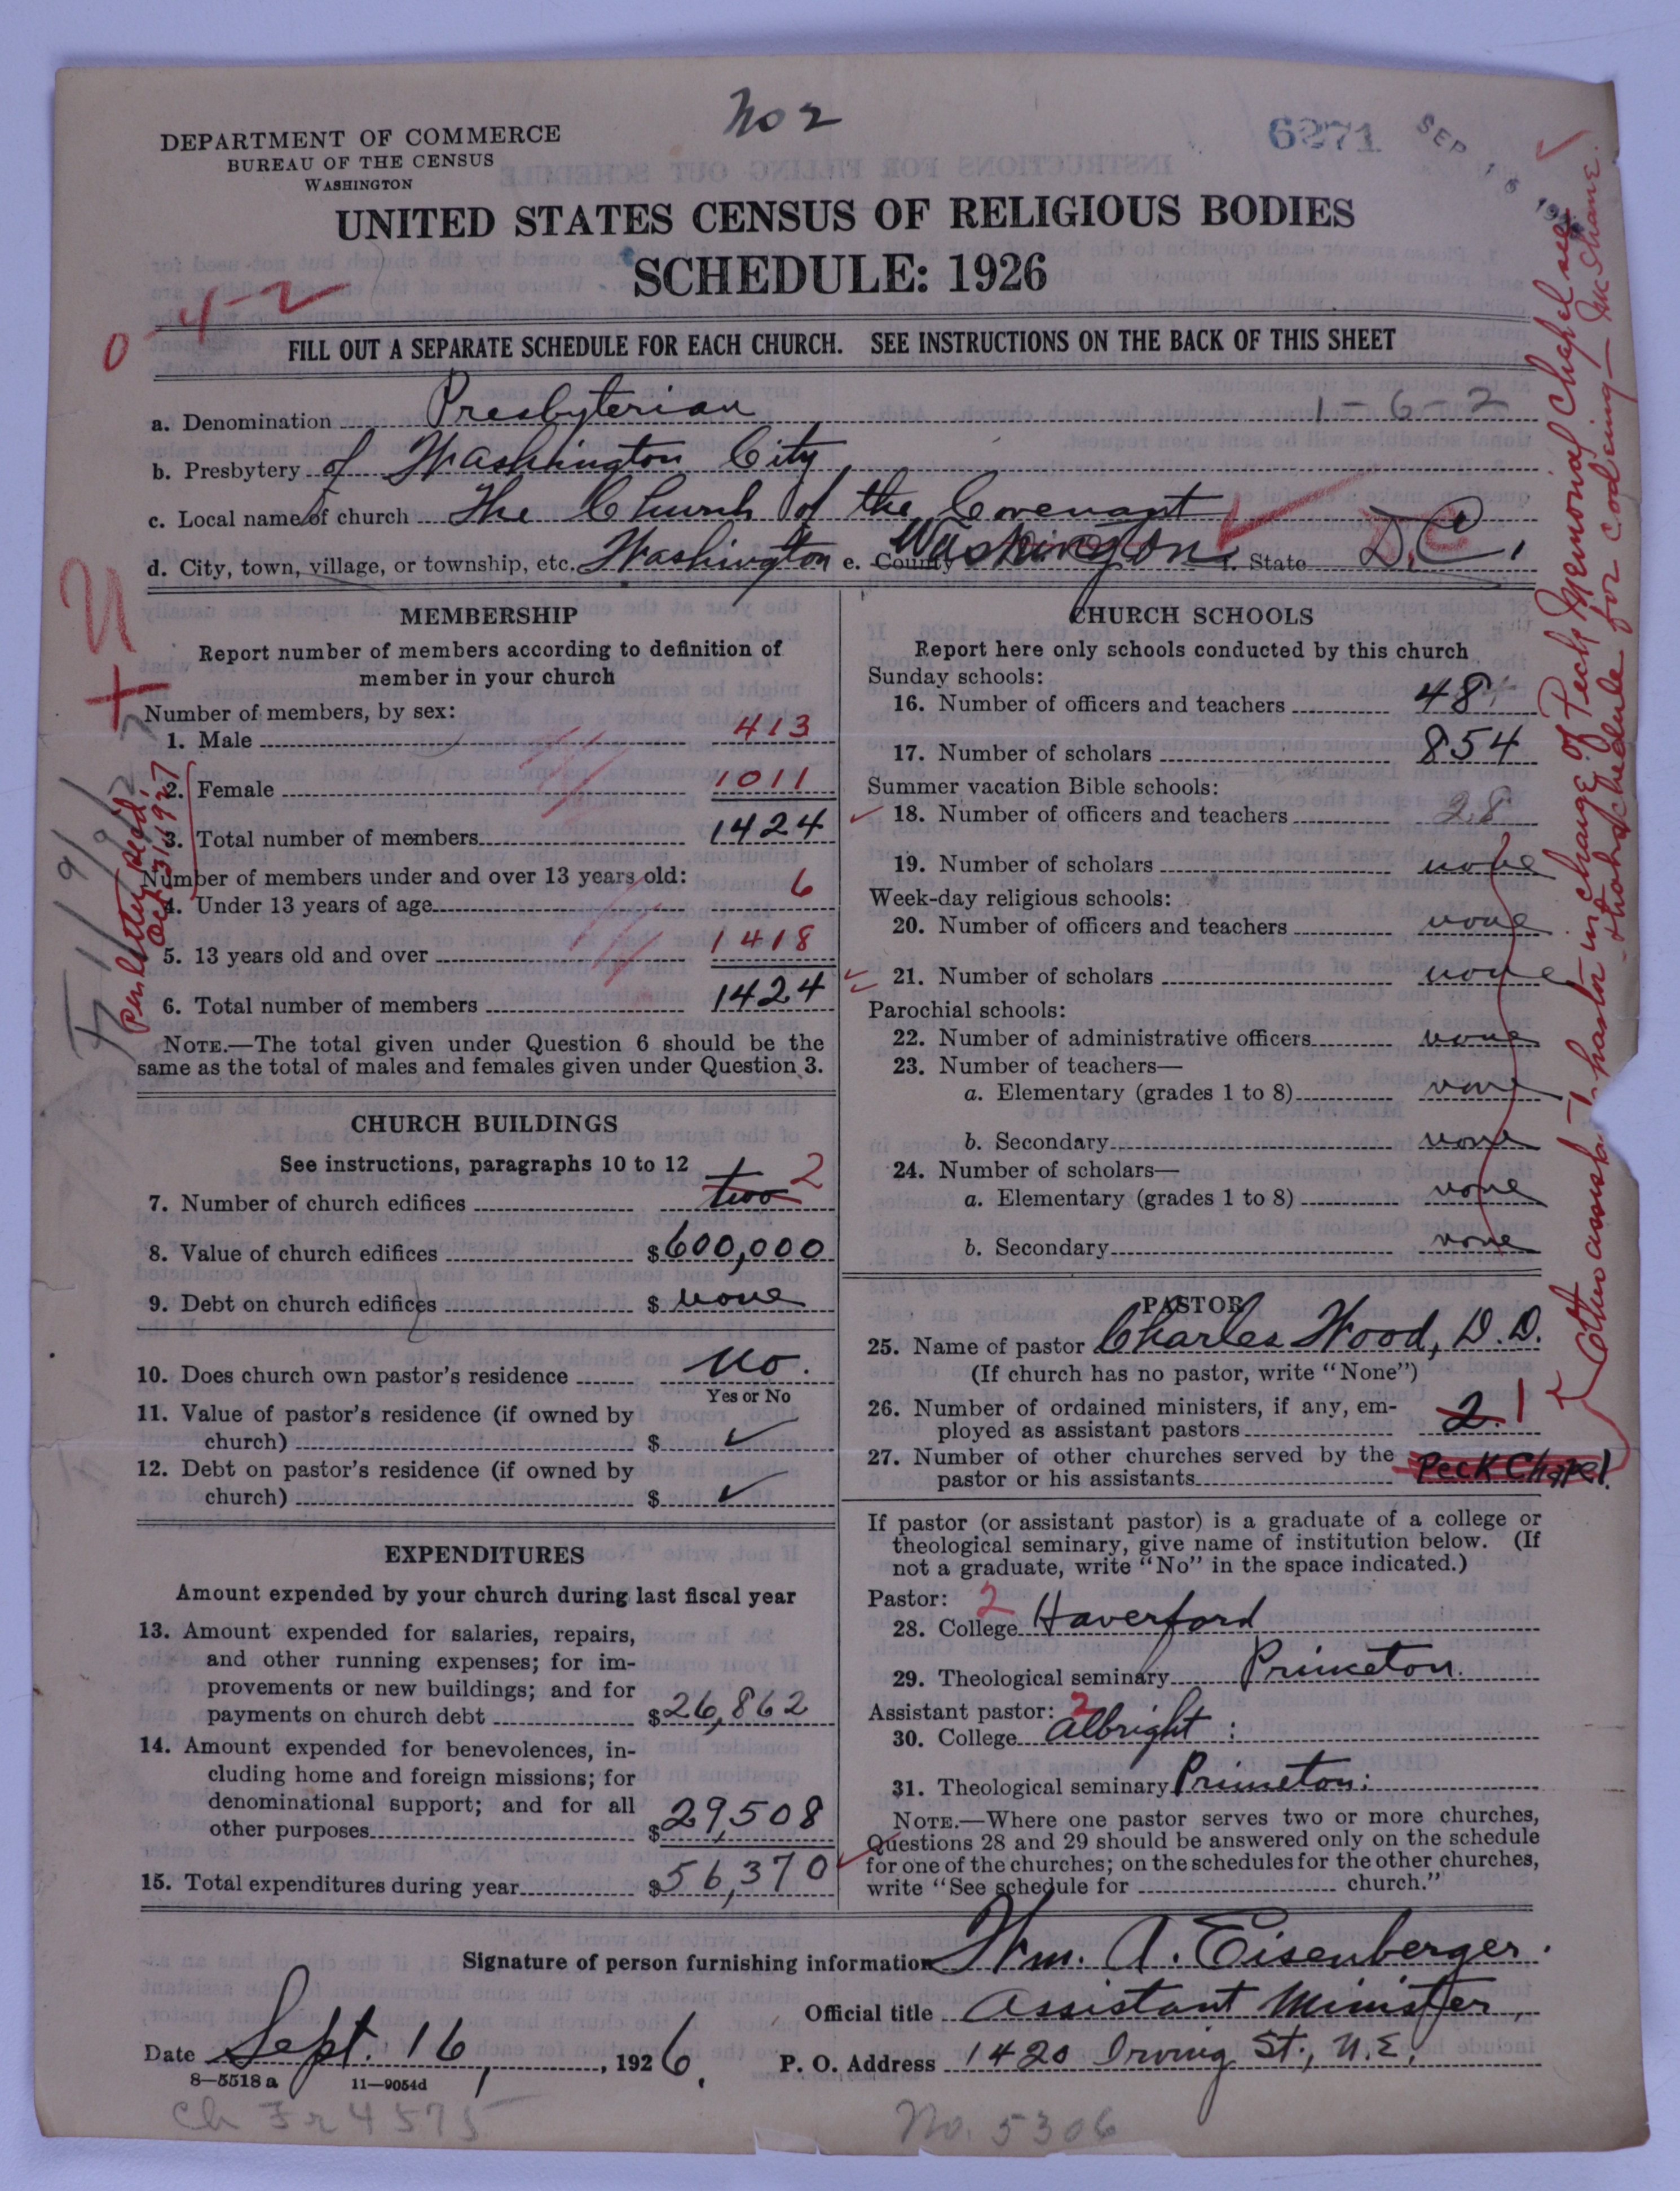 No 2
6271
SEP 18 192
DEPARTMENT OF COMMERCE
BUREAU OF THE CENSUS
WASHINGTON
UNITED STATES CENSUS OF RELIGIOUS BODIES
SCHEDULE: 1926
0-4-2
FILL OUT A SEPARATE SCHEDULE FOR EACH CHURCH. SEE INSTRUCTIONS ON THE BACK OF THIS SHEET
a. Denomination Presbyterian 1-6-2
b. Presbytery of Washington City
c. Local name of church The Church of the Covenant
d. City, town, village, or township, etc. Washington e. County Washington f. State D.C.
MEMBERSHIP
Report number of members according to definition of
member in your church
Number of members, by sex:
1. Male 413
2. Female 1011
3. Total number of members 1424
Number of members under and over 13 years old:
4. Under 13 years of age 6
5. 13 years old and over 1418
6. Total number of members 1424
NOTE.—The total given under Question 6 should be the
same as the total of males and females given under Question 3.
Per letter recd.
Oct. 31, 1927
CHURCH BUILDINGS
See instructions, paragraphs 10 to 12
7. Number of church edifices two 2
8. Value of church edifices $600,000
9. Debt on church edifices $ none
10. Does church own pastor's residence No.
Yes or No
11. Value of pastor's residence (if owned by
church) $ ✓
12. Debt on pastor's residence (if owned by
church) $ ✓
EXPENDITURES
Amount expended by your church during last fiscal year
13. Amount expended for salaries, repairs,
and other running expenses; for im-
provements or new buildings; and for
payments on church debt $26,862
14. Amount expended for benevolences, in-
cluding home and foreign missions; for
denominational support; and for all
other purposes $29,508
15. Total expenditures during year $56,370
CHURCH SCHOOLS
Report here only schools conducted by this church
Sunday schools:
16. Number of officers and teachers 48
17. Number of scholars 854
Summer vacation Bible schools:
18. Number of officers and teachers 28
19. Number of scholars none
Week-day religious schools:
20. Number of officers and teachers none
21. Number of scholars none
Parochial schools:
22. Number of administrative officers none
23. Number of teachers—
a. Elementary (grades 1 to 8) none
b. Secondary none
24. Number of scholars—
a. Elementary (grades 1 to 8) none
b. Secondary none
PASTOR
25. Name of pastor Charles Wood, D.D.
(If church has no pastor, write "None")
26. Number of ordained ministers, if any, em-
ployed as assistant pastors 2 1
27. Number of other churches served by the
pastor or his assistants Peck Chapel
If pastor (or assistant pastor) is a graduate of a college or
theological seminary, give name of institution below. (If
not a graduate, write "No" in the space indicated.)
Pastor: 2
28. College Haverford
29. Theological seminary Princeton.
Assistant pastor: 2
30. College Albright :
31. Theological seminary Princeton:
NOTE.—Where one pastor serves two or more churches,
Questions 28 and 29 should be answered only on the schedule
for one of the churches; on the schedules for the other churches,
write "See schedule for church."
Other assist. pastor in charge of Peck Memorial Chapel see
that schedule for coding — McShane.
Signature of person furnishing information Wm. A. Eisenberger.
Official title Assistant Minister,
Date Sept. 16, 1926. P. O. Address 1420 Irving St., N.E.
8—5518 a 11—9054d
Ch Fr 4575
No. 5306